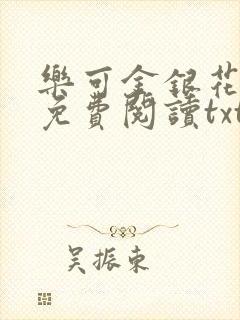 樂可金銀花
免費閱讀txt
吴振东